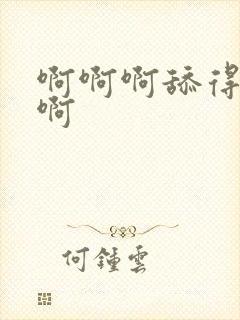 啊啊啊舔得
啊
何鍾雲